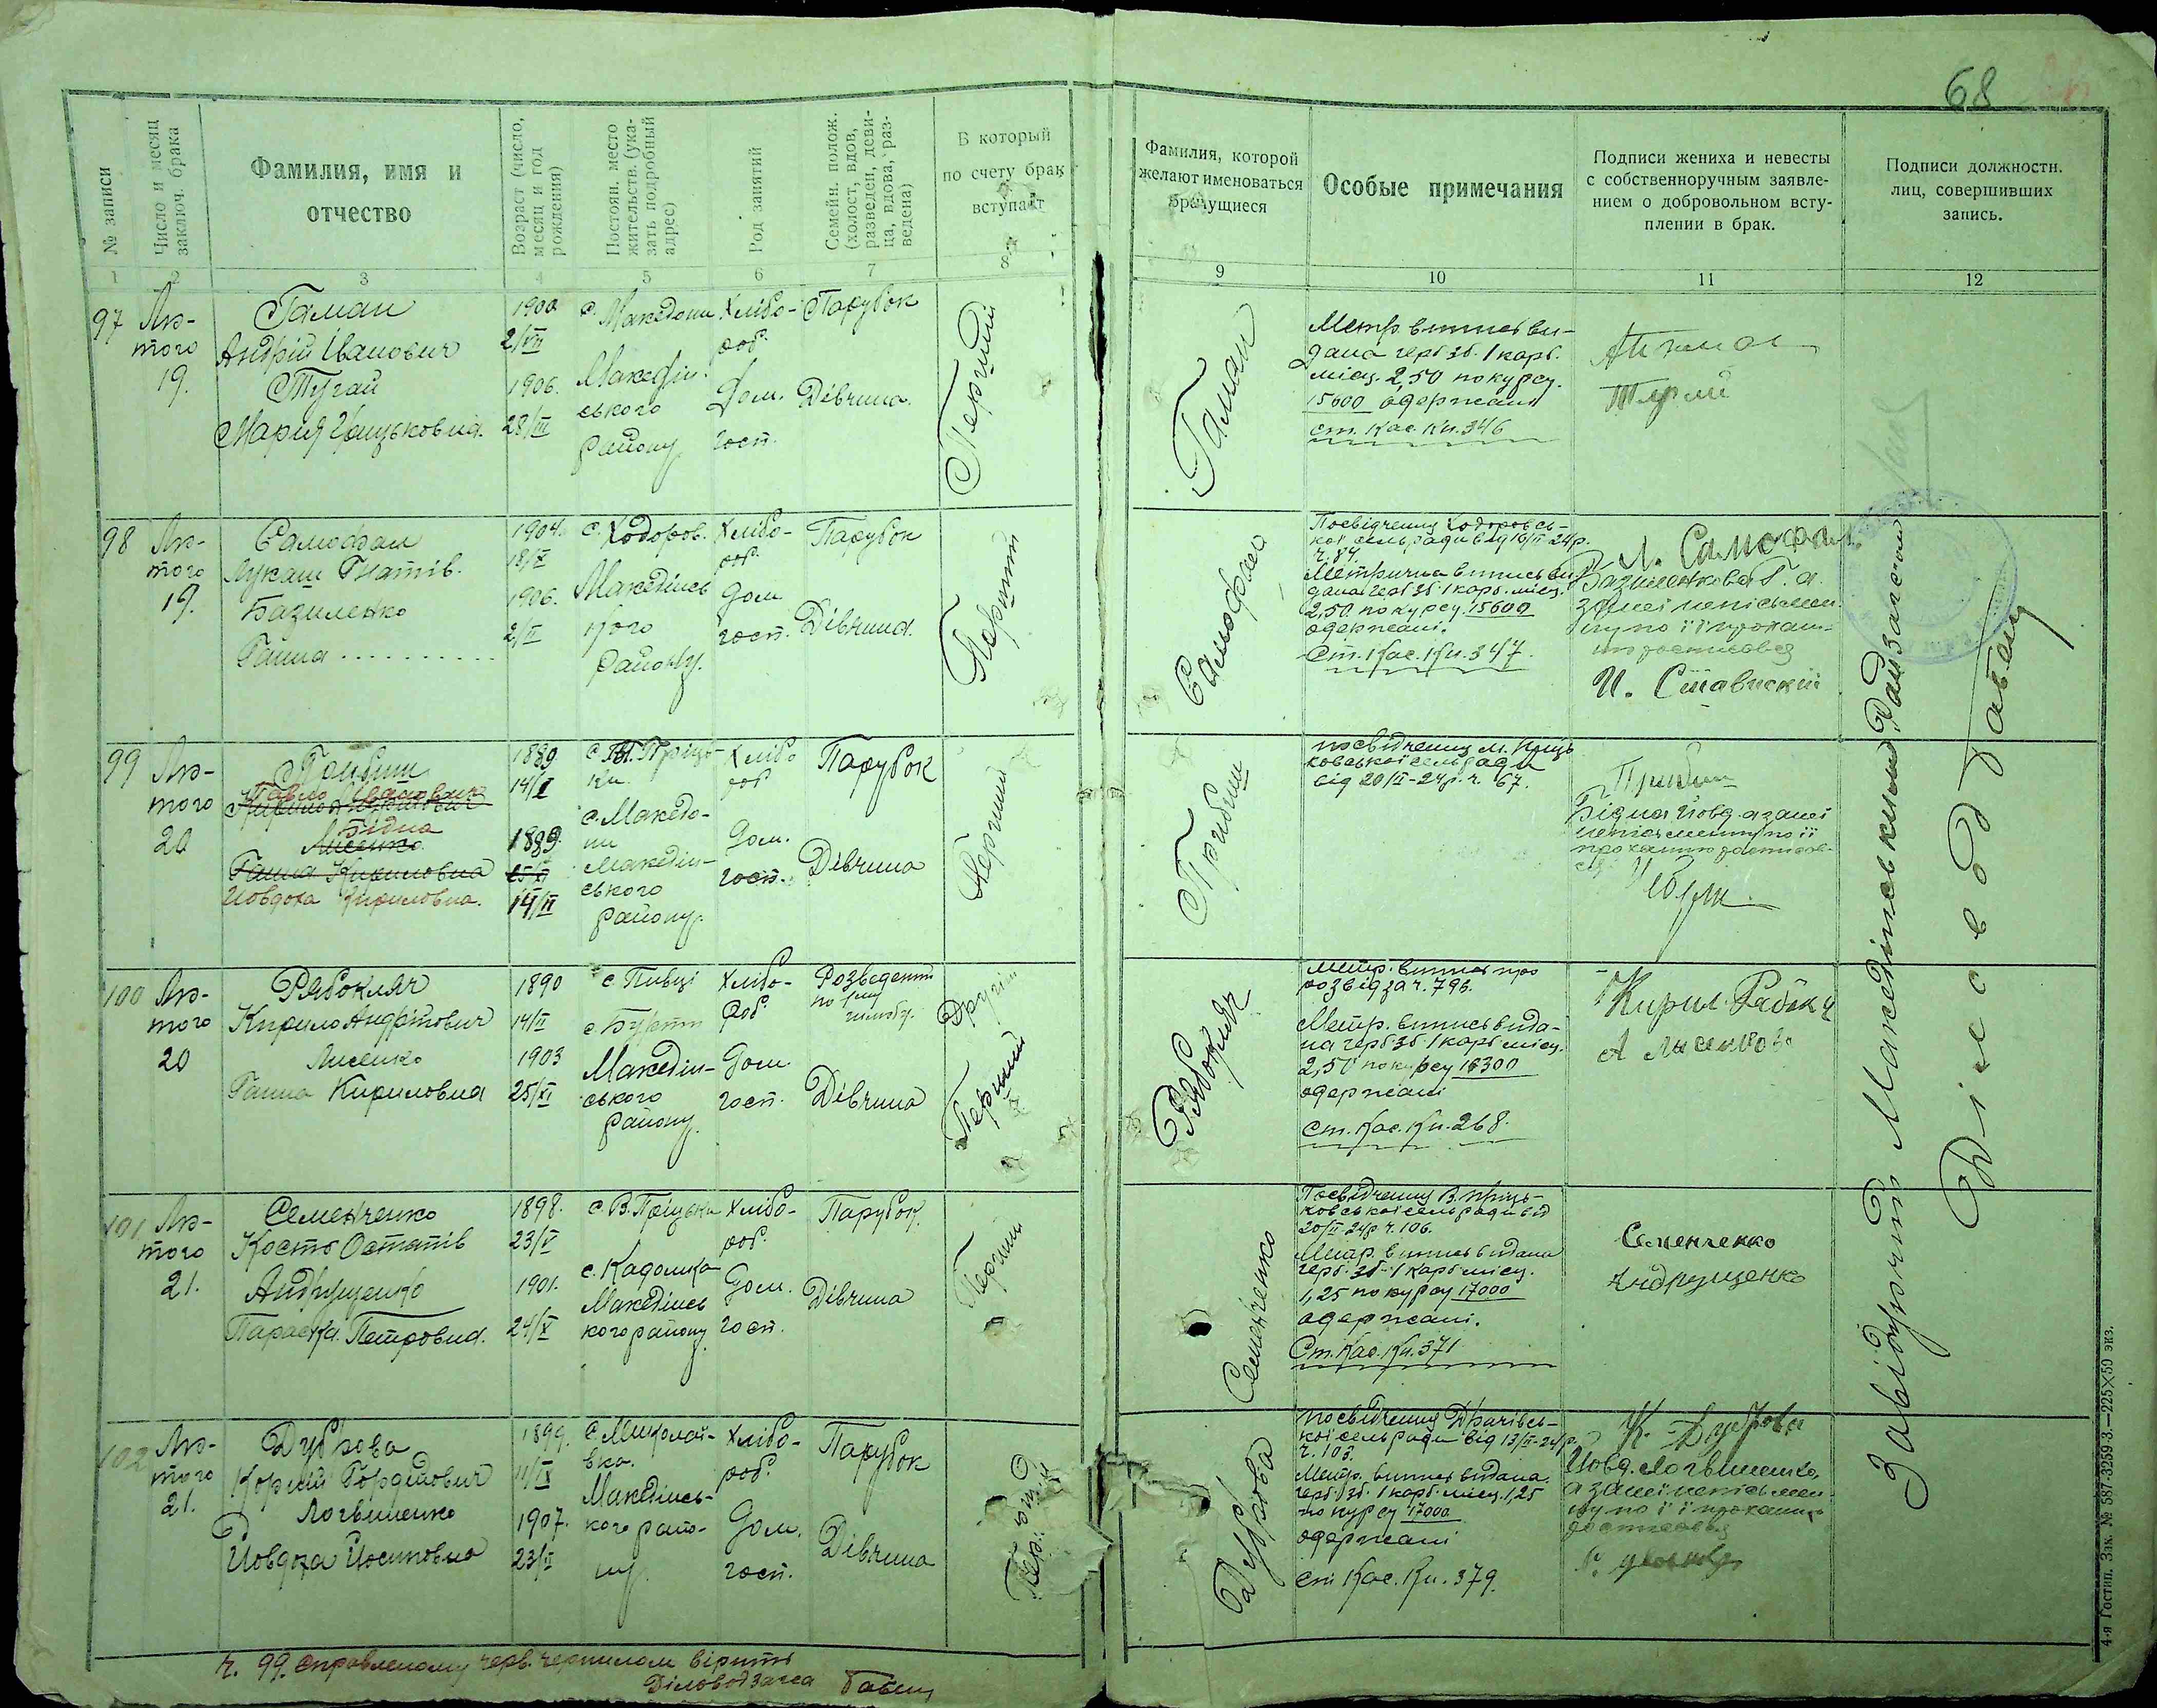 68
№ записи
Число и месяц
заключ. брака
Фамилия, имя и
отчество
Возраст (число,
месяц и год
рождения)
Постоян. место
жительств. (ука-
зать подробный
адрес)
Род занятий
Семейн. полож.
(холост, вдов,
разведен, деви-
ца, вдова, раз-
ведена)
В который
по счету брак
вступает
Фамилия, которой
желают именоваться
брачущиеся
Особые примечания
Подписи жениха и невесты
с собственноручным заявле-
нием о добровольном всту-
плении в брак.
Подписи должностн.
лиц, совершивших
запись.
1 2 3 4 5 6 7 8 9 10 11 12
97
Лю-
того
19.
Гаман
Андрій Іванович
Тугай
Мария Грицьковна.
1900
2/VII
1906.
28/III
с. Македони
Македін-
ського
району
Хлібо-
роб.
Дом.
госп.
Парубок
Дівчина.
Перший
Гаман
Метр. витпись ви-
дана герб зб. 1 карб.
місц. 2,50 по курсу.
15600 одержані
ст. Кас. Кн. 346
98
Лю-
того
19.
Самофал
Лукаш Гнатів.
Базиленко
Ганна
1904.
18/X
1906.
2/II
с. Ходоров.
Македінсь
кого
району.
Хлібо-
роб.
Дом
госп.
Парубок
Дівчина.
Перший
Самофал
Посвідчення Ходоровсь-
кої сельради від 16/II-24р.
ч. 84.
Метрична витпись ви
дана герб зб 1 карб. місц.
2,50 по курсу 15600
одержані.
Ст. Кас. Кн. 347.
Л. Самофал
Базиленкова Г. а
за неї неписьмен
ну по її прохан-
ню росписавсь
И. Ставиский
99
Лю-
того
20
Грибин
Павло Іванович
Бідна
Лисенко
Ганна Кириловна
Иовдоха Кириловна.
1889
14/I
1889.
25/XI
14/II
с. М. Пріць-
ки.
с. Македо-
ни
Македін-
ського
району.
Хлібо
роб
Дом.
госп.
Парубок
Дівчина
Перший
Грибин
посвідчення М. Пріць
ковської сельради
від 20/II-24р. ч. 67.
Бідна Иовд. а за неї
неписьменну по її
проханню росписав-
сь
100
Лю-
того
20
Рябокляч
Кирило Андрійович
Лисенко
Ганна Кириловна
1890
14/II
1903
25/XI
с. Пивці
с. Бурти
Македін-
ського
району.
Хлібо-
роб
Дом
госп.
Розведений
Дівчина
Другий
Перший
Рябокляч
метр. витпис про
розвід за ч. 796.
Метр. витпись вида-
на герб зб 1 карб місц.
2,50 по курсу 16300
одержані
ст. Кас. Кн. 268.
101
Лю-
того
21.
Семенченко
Кость Остапів
Андрущенко
Параска Петровна.
1898.
23/V
1901.
24/X
с. В. Пріцьки
с. Кадомка
Македінсь
кого району
Хлібо-
роб.
Дом.
госп.
Парубок.
Дівчина
Перший
Семенченко
Посвідчення В. Пріць-
ковської сельради від
20/II-24р ч. 106.
Метр. витпись видана
герб. зб-1 карб місц.
1,25 по курсу 17000
одержані.
Ст. Кас. Кн. 371
Семенченко
Андрущенко
102
Лю-
того
21.
Дуброва
Корній Гордійович
Логвиненко
Иовдоха Иосиповна
1899.
11/IX
1907.
23/II
с. Миколаї-
вка.
Македінсь-
кого райо-
ну.
Хлібо-
роб.
Дом.
госп.
Парубок
Дівчина
Дуброва
посвідчення Драчівсь-
кої сельради від 13/II-24р.
ч. 103.
Метр. витпись видана.
герб. зб. 1 карб. місц. 1,25
по курсу 17000
одержані
ст Кас. Кн. 379.
К. Дуброва
Иовд. Логвиненко,
а за неї неписьмен
ну по її проханню
росписавсь
Завідуючий Македінським Райзагсом
Діловод Бабенц
ч. 99. справленому черв. чернилом вірить
Діловод Загса
4-я Гостип. Зак. № 587-3259-3.—225×50 экз.